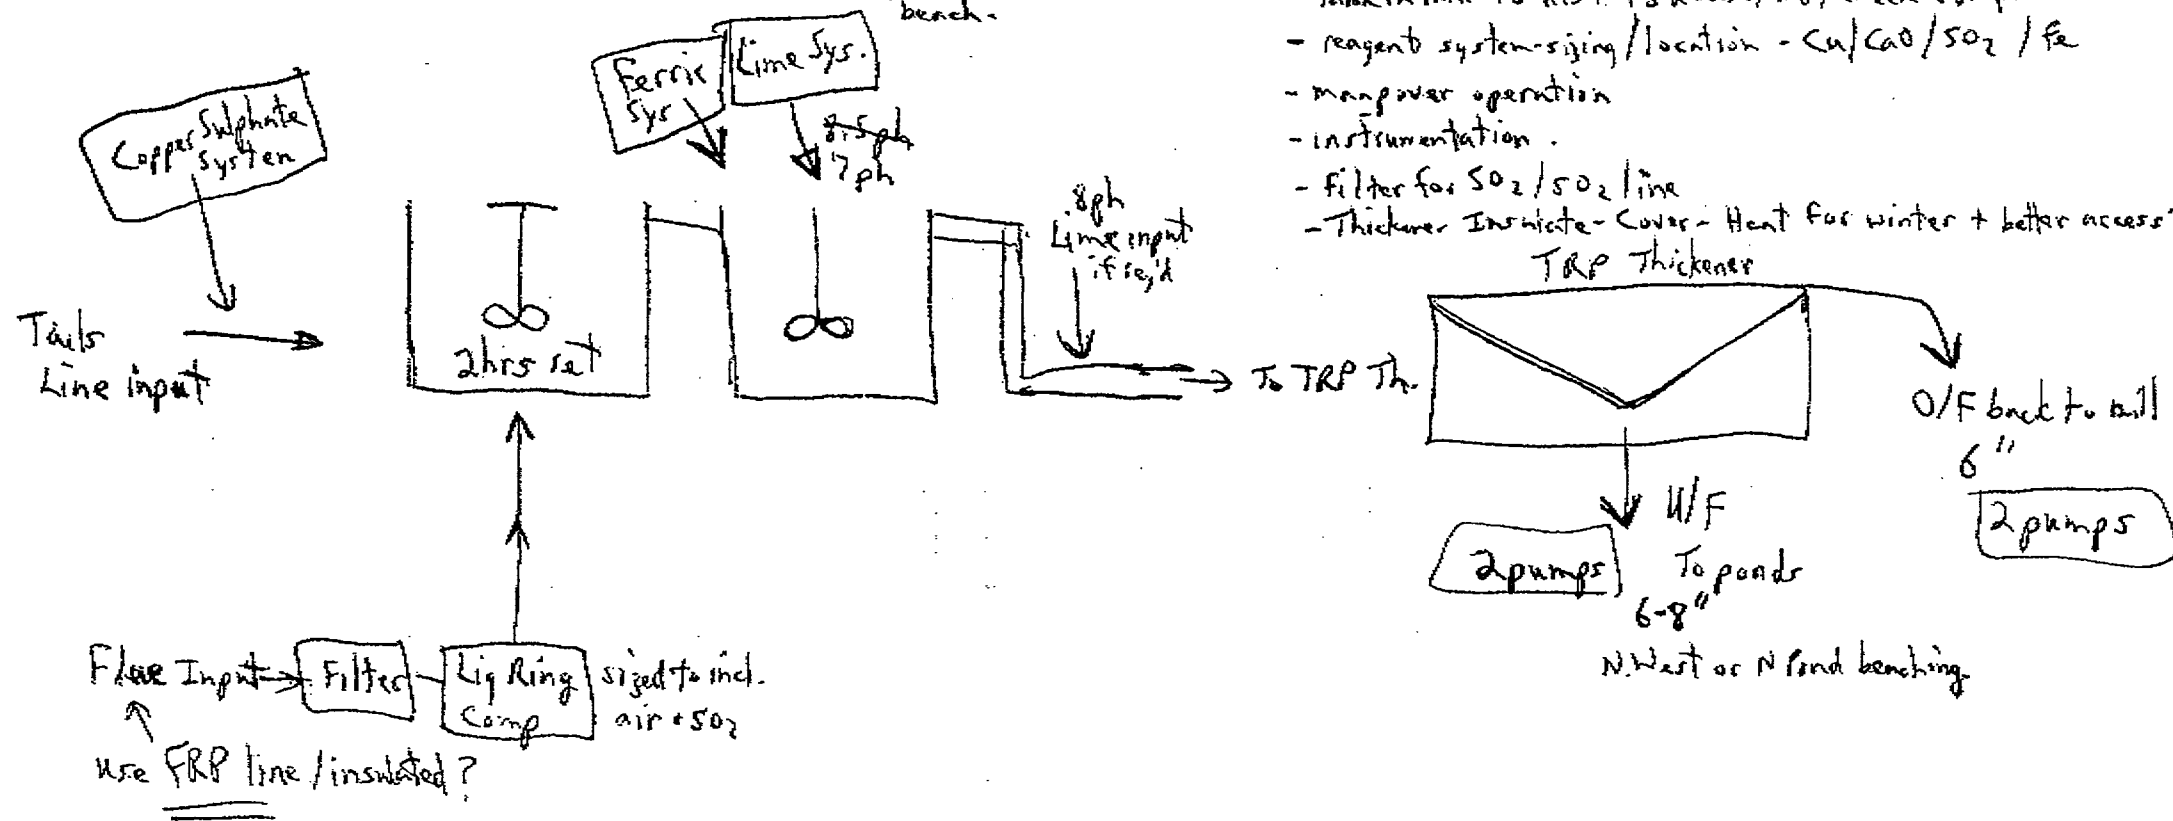 bench.
- reagent system-sizing/location - Cu/CaO/SO2 / Fe
- manpower operation
- instrumentation.
- Filter for SO2/SO2 line
- Thickener Insulate - Cover - Heat for winter + better access
Copper Sulphate
System
Ferric
Sys
Lime Sys.
8.5 ph
7 ph
8ph
Lime input
if req'd
Tails
Line input
2hrs ret
To TRP Th.
TRP Thickener
O/F back to mill
6"
2 pumps
U/F
2pumps
To ponds
6-8"
N.West or N Pond benching.
Flue Input
Filter
Liq Ring
Comp
sized to incl.
air + SO2
use FRP line/insulated?